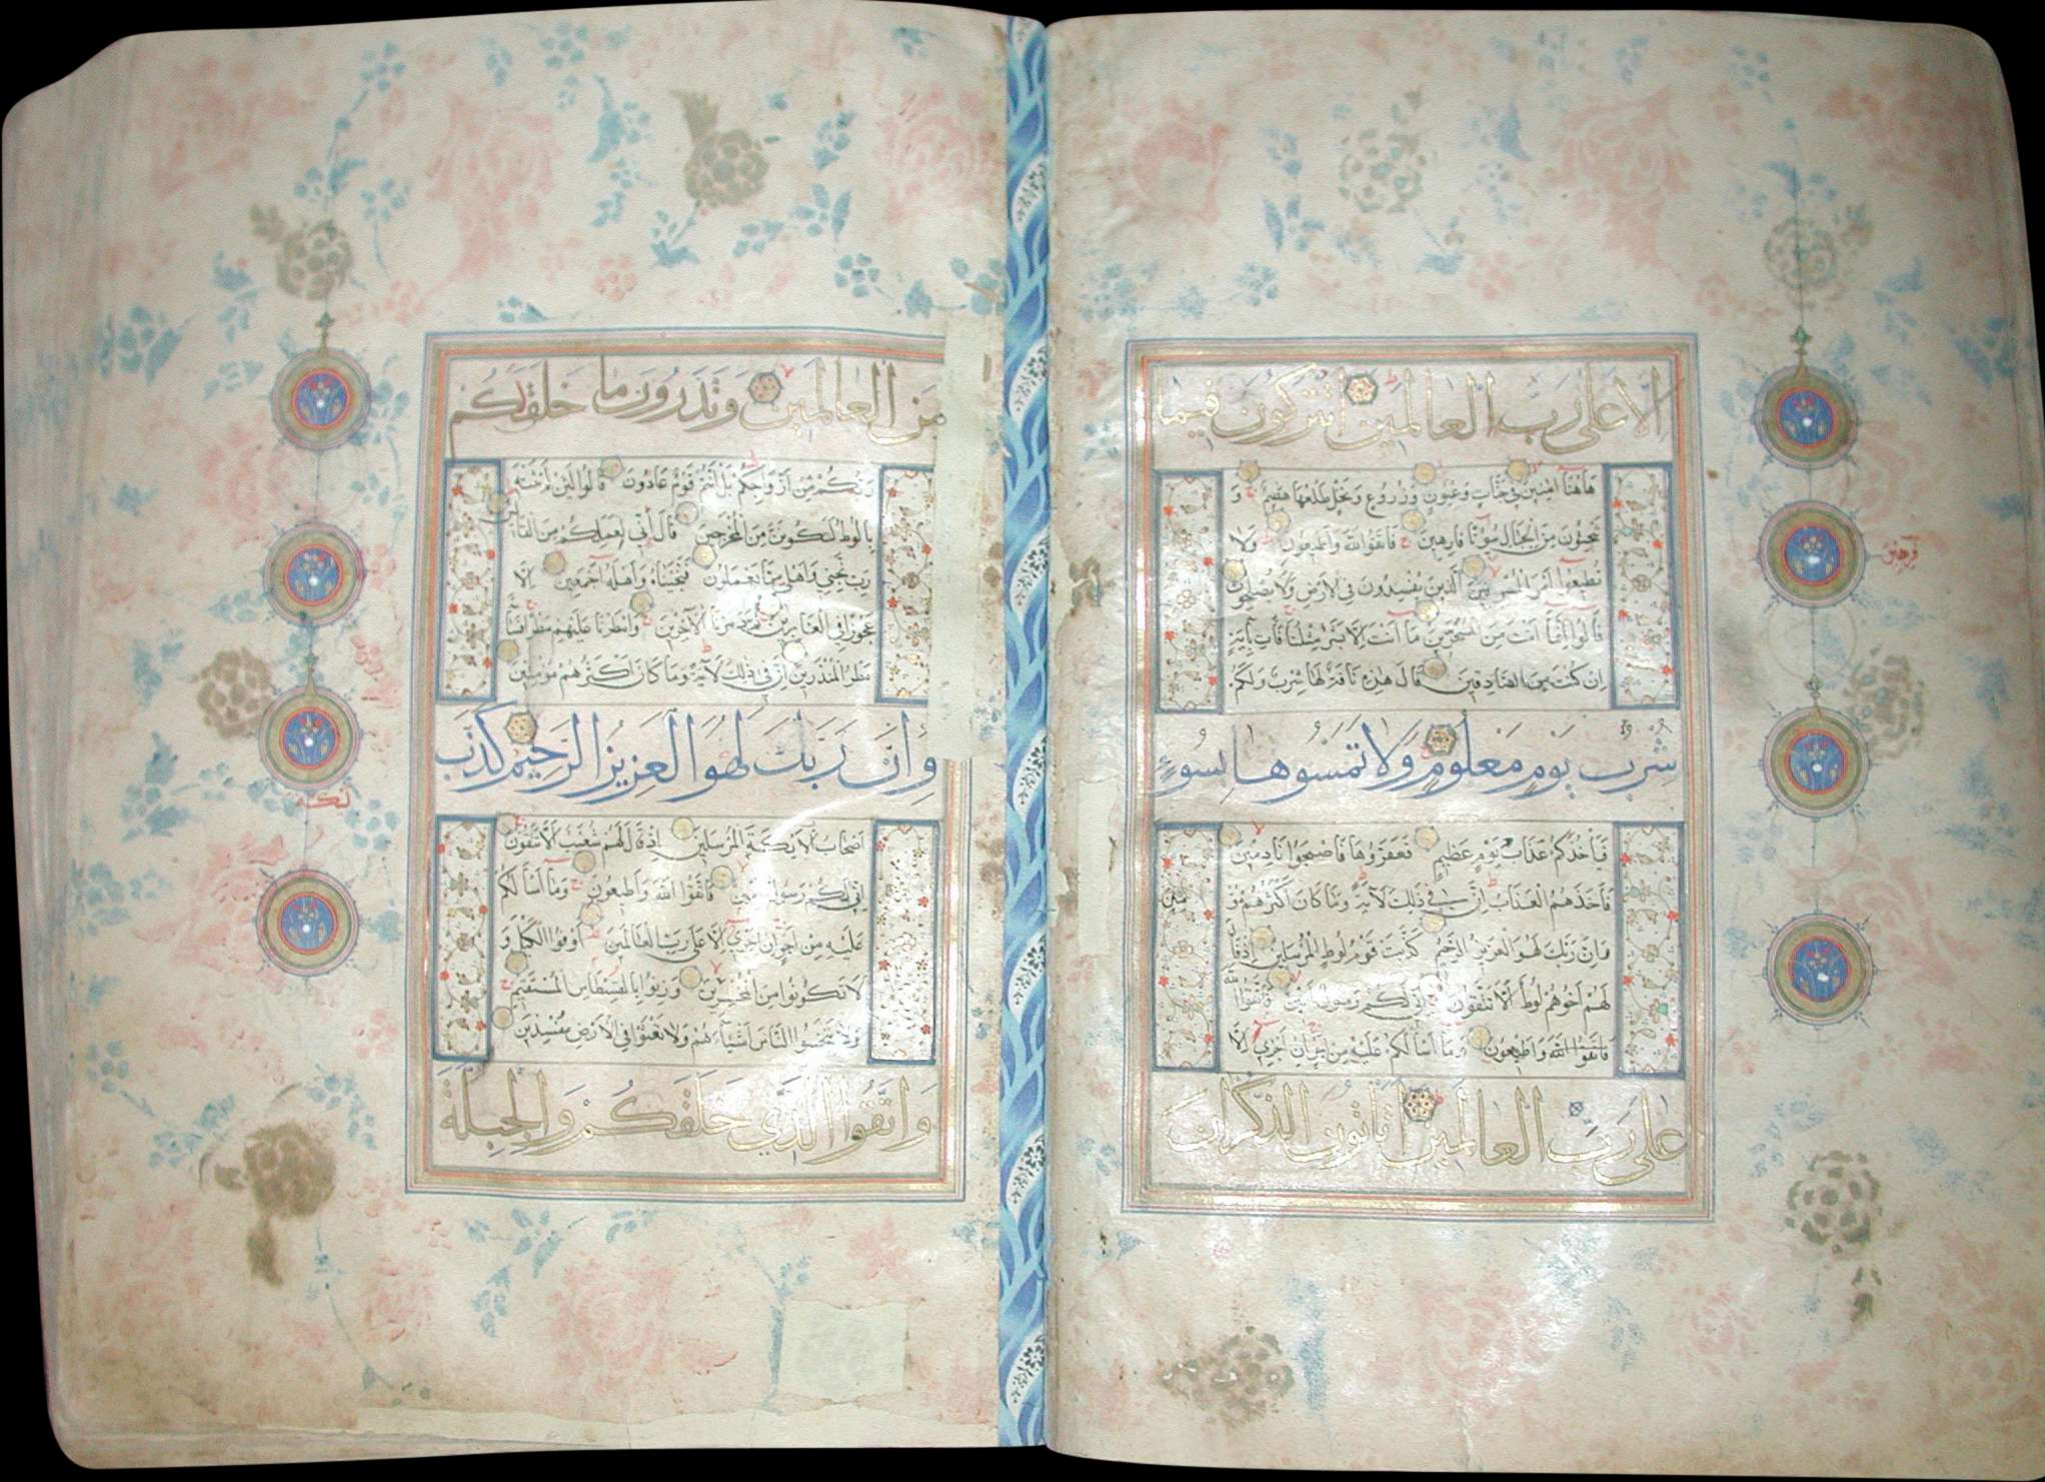 الا على رب العالمين اتتركون فيما
هاهنا امنين في جنات وعيون وزروع ونخل طلعها هضيم و
تنحتون من الجبال بيوتا فارهين فاتقوا الله واطيعون ولا
فرهين
تطيعوا امر المسرفين الذين يفسدون في الارض ولا يصلحون
قالوا انما انت من المسحرين ما انت الا بشر مثلنا فات باية
ان كنت من الصادقين قال هذه ناقة لها شرب ولكم
شرب يوم معلوم ولا تمسوها بسوء
فياخذكم عذاب يوم عظيم فعقروها فاصبحوا نادمين
فاخذهم العذاب ان في ذلك لاية وما كان اكثرهم مؤ منين
وان ربك لهو العزيز الرحيم كذبت قوم لوط المرسلين اذ قال
لهم اخوهم لوط الا تتقون اني لكم رسول امين فاتقوا الله
فاتقوا الله واطيعون وما اسالكم عليه من اجر ان اجري الا
على رب العالمين اتاتون الذكران
من العالمين وتذرون ما خلق لكم
ربكم من ازواجكم بل انتم قوم عادون قالوا لئن لم تنته
يا لوط لتكونن من المخرجين قال اني لعملكم من القالين
رب نجني واهلي مما يعملون فنجيناه واهله اجمعين الا
عجوزا في الغابرين ثم دمرنا الاخرين وامطرنا عليهم مطرا فساء
مطر المنذرين ان في ذلك لاية وما كان اكثرهم مؤمنين
وان ربك لهو العزيز الرحيم كذب
ليكة
اصحاب الايكة المرسلين اذ قال لهم شعيب الا تتقون
اني لكم رسول امين فاتقوا الله واطيعون وما اسالكم
عليه من اجر ان اجري الا على رب العالمين اوفوا الكيل و
لا تكونوا من المخسرين وزنوا بالقسطاس المستقيم
ولا تبخسوا الناس اشياءهم ولا تعثوا في الارض مفسدين
واتقوا الذي خلقكم والجبلة